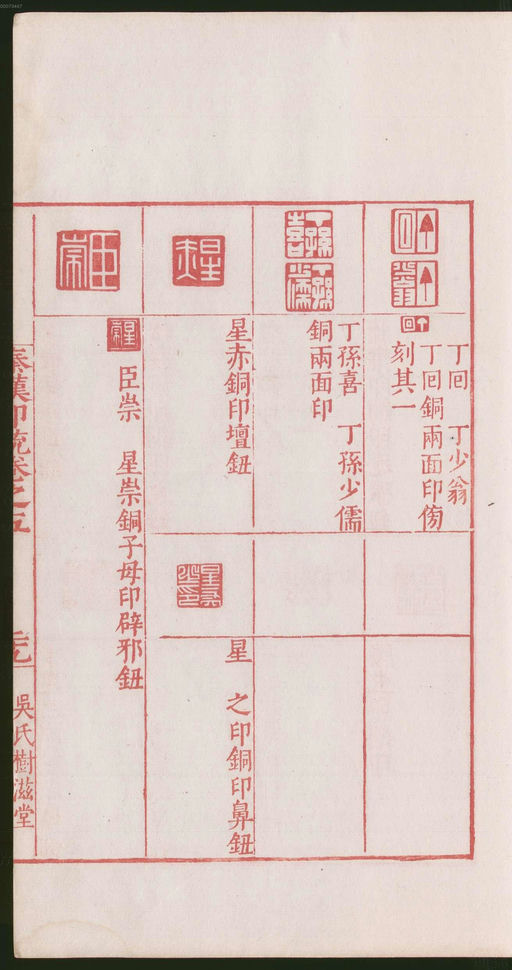 丁囘　丁少翁
丁囘銅兩面印傍
刻其一
丁孫喜　丁孫少儒
銅兩面印
星赤銅印壇鈕
星　之印銅印鼻鈕
臣崇　星崇銅子母印辟邪鈕
秦漢印統卷之五
吳氏樹滋堂
00073447